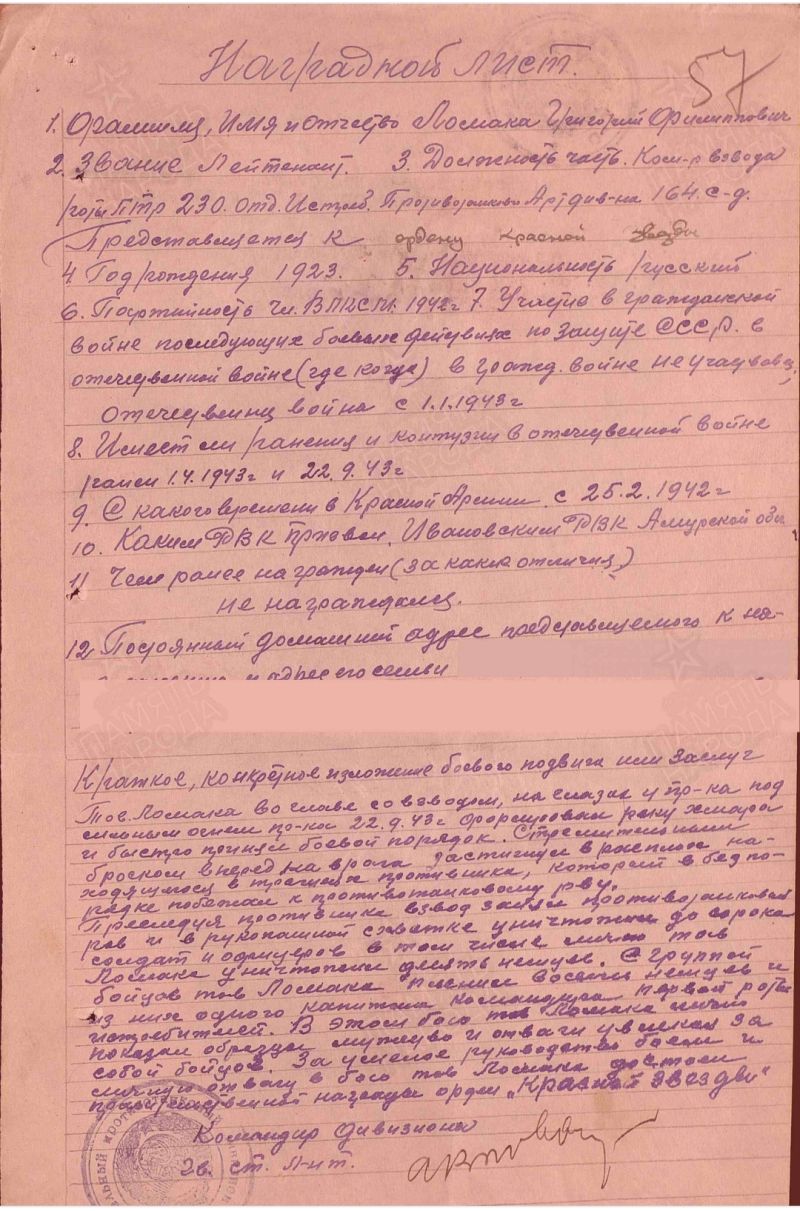 57
Наградной лист.
1. Фамилия, Имя и Отчество Ломака Григорий Филиппович
2. Звание Лейтенант. 3. Должность часть. Ком-р взвода
роты ПТР 230. отд. Истреб. Противотанково Артдив-на 164. с-д.
Представляется к ордену красной звезды
4. Год рождения 1923. 5. Национальность русский
6. Партийность чл. ВЛКСМ. 1942г 7. Участие в гражданской
войне последующих боевых действиях по защите СССР. в
отечественной войне (где когда) в гражд. войне не участвовал,
отечественная война с 1.1.1943г
8. Имеет ли ранения и контузии в отечественной войне
ранен 1.4.1943г и 22.9.43г
9. С какого времени в Красной Армии с 25.2.1942г
10. Каким РВК призван. Ивановским РВК Амурской обл
11 Чем ранее награжден (за какие отличия)
не награждался.
12 Постоянный домашний адрес представляемого к на-
и адрес его семьи
Краткое, конкретное изложение боевого подвига или заслуг
Тов. Ломака во главе со взводом, на глазах у пр-ка под
сильным огнем пр-ка 22.9.43г форсировал реку Хмара
и быстро принял боевой порядок. Стремительным
броском вперед на врага застигнул в расплох на-
ходящегося в траншеях противника, который в беспо-
рядке побежал к противотанковому рву.
Преследуя противника взвод занял противотанковый
ров и в рукопашной схватке уничтожил до сорока
солдат и офицеров в том числе лично тов
Ломака уничтожил девять немцев. С группой
бойцов тов Ломака пленил восемь немцев и
из них одного капитана командира первой роты
истребителей. В этом бою тов Ломака лично
показал образцы мужества и отваги увлекая за
собой бойцов. За умелое руководство боем и
личную отвагу в бою тов Ломака достоин
правительственной награды орден „Красной звезды"
Командир дивизиона
гв. ст. л-нт.